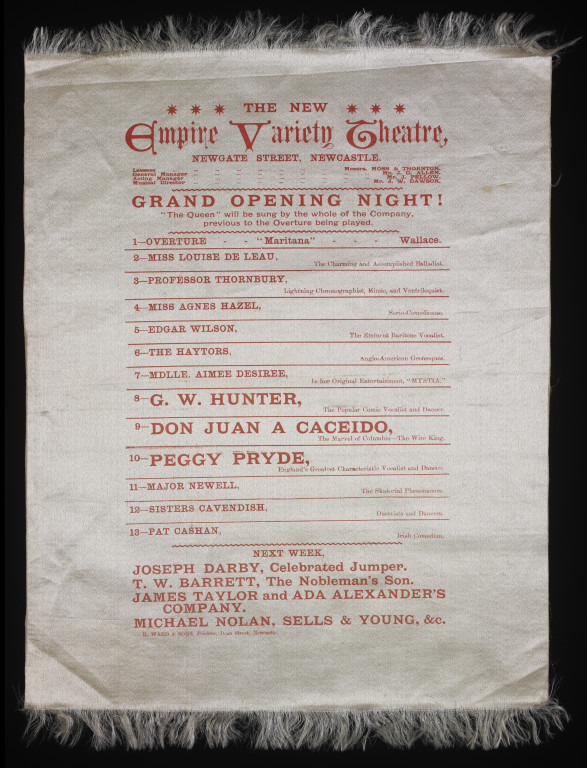 THE NEW
Empire Variety Theatre,
NEWGATE STREET, NEWCASTLE.
Lessees Messrs. MOSS & THORNTON.
General Manager Mr. J. D. ALLEN.
Acting Manager Mr. J. PELLOW.
Musical Director Mr. J. W. DAWSON.
GRAND OPENING NIGHT!
"The Queen" will be sung by the whole of the Company,
previous to the Overture being played.
1—OVERTURE - - "Maritana" - - - Wallace.
2—MISS LOUISE DE LEAU,
The Charming and Accomplished Balladist.
3—PROFESSOR THORNBURY,
Lightning Chromographist, Mimic, and Ventriloquist.
4—MISS AGNES HAZEL,
Serio-Comedienne.
5—EDGAR WILSON,
The Eminent Baritone Vocalist.
6—THE HAYTORS,
Anglo-American Grotesques.
7—MDLLE. AIMEE DESIREE,
In her Original Entertainment, "MYSTIA."
8—G. W. HUNTER,
The Popular Comic Vocalist and Dancer.
9—DON JUAN A CACEIDO,
The Marvel of Columbia—The Wire King.
10—PEGGY PRYDE,
England's Greatest Characteristic Vocalist and Dancer.
11—MAJOR NEWELL,
The Skatorial Phenomenon.
12—SISTERS CAVENDISH,
Duettists and Dancers.
13—PAT CASHAN,
Irish Comedian.
NEXT WEEK,
JOSEPH DARBY, Celebrated Jumper.
T. W. BARRETT, The Nobleman's Son.
JAMES TAYLOR and ADA ALEXANDER'S
COMPANY.
MICHAEL NOLAN, SELLS & YOUNG, &c.
R. WARD & SONS, Printers, Dean Street, Newcastle.